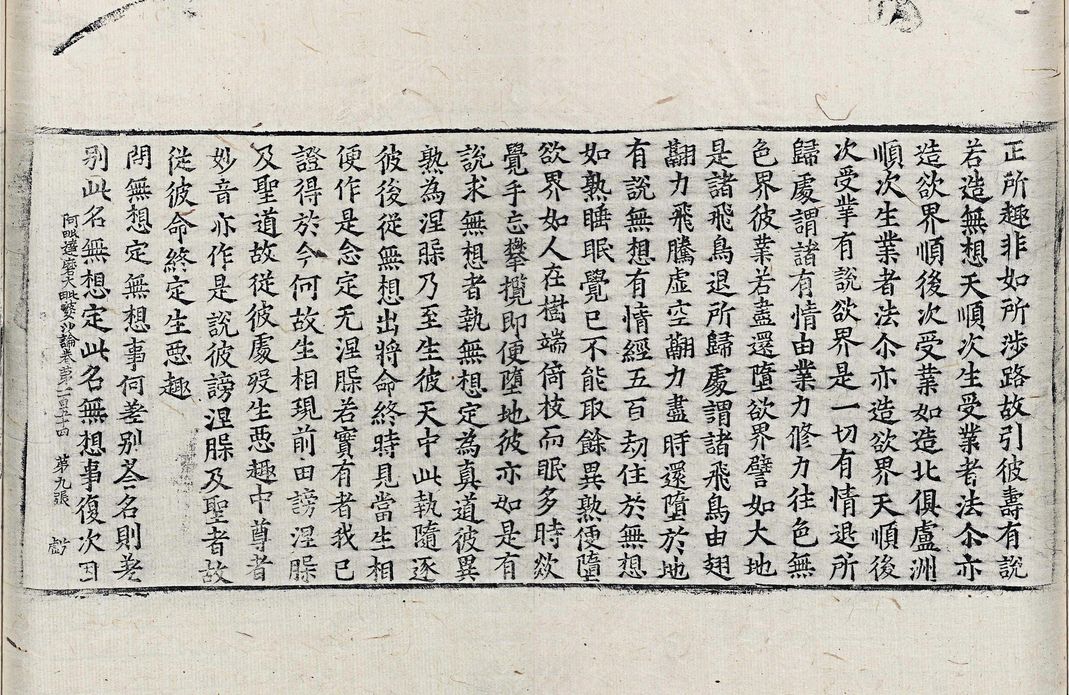 正所趣非如所涉路故引彼壽有說
若造無想天順次生受業者法尒亦
造欲界順後次受業如造北俱盧洲
順次生業者法尒亦造欲界天順後
次受業有說欲界是一切有情退所
歸處謂諸有情由業力修力往色無
色界彼業若盡還墮欲界譬如大地
是諸飛鳥退所歸處謂諸飛鳥由翅
翮力飛騰虛空翮力盡時還墮於地
有說無想有情經五百劫住於無想
如熟睡眠覺已不能取餘異熟便墮
欲界如人在樹端倚枝而眠多時欻
覺手忘攀攬即便墮地彼亦如是有
說求無想者執無想定為真道彼異
熟為涅槃乃至生彼天中此執隨逐
彼後從無想出將命終時見當生相
便作是念定无涅槃若實有者我已
證得於今何故生相現前由謗涅槃
及聖道故從彼處歿生惡趣中尊者
妙音亦作是說彼謗涅槃及聖者故
從彼命終定生惡趣
問無想定無想事何差別荅名則差
別此名無想定此名無想事復次因
阿毗達磨大毗婆沙論卷第一百五十四 第九張